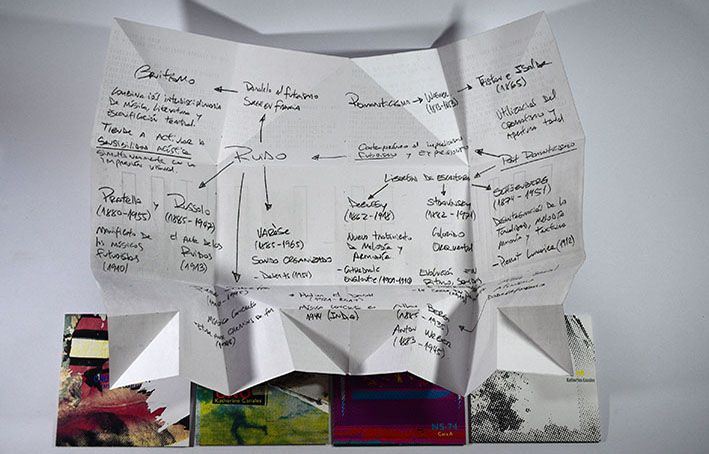 Bruitismo
Combinación interdisciplinaria
de Música, Literatura y
Tiende a Activar la
Sensibilidad Acústica
Simultáneamente con la
impresión visual.
Paralelo al futurismo
Surge en francia
Romanticismo
Wagner
(1813-1883)
Tristan e Isolda
(1865)
Utilización del
cromatismo y
apertura tonal
RUIDO
Futurismo y Expresionismo
Post Romanticismo
Libertad de escritura
Pratella y
(1880-1955)
Manifiesto de
los músicos
Futuristas
(1910)
Russolo
(1885-1947)
el Arte de los
Ruidos
(1913)
VARÈSE
(1885-1965)
SONIDO ORGANIZADO
- Deserts (1954)
Debussy
(1862-1918)
Nuevo tratamiento
de Melodía y
Armonía
Stravinsky
(1882-1971)
Colorido
Orquestal
Evolución en
Ritmo
SCHÖENBERG
(1874-1951)
Desintegración de la
Tonalidad, melodía
armonía y textura
- Pierrot Lunaire (1912)
Música Concreta
(1948)
1944 (INDIA)
Alban
BERG
(1885-1935)
Anton Webern
(1883-1945)
Katherine Canales
NS-74
Cara A
Katherine Canales